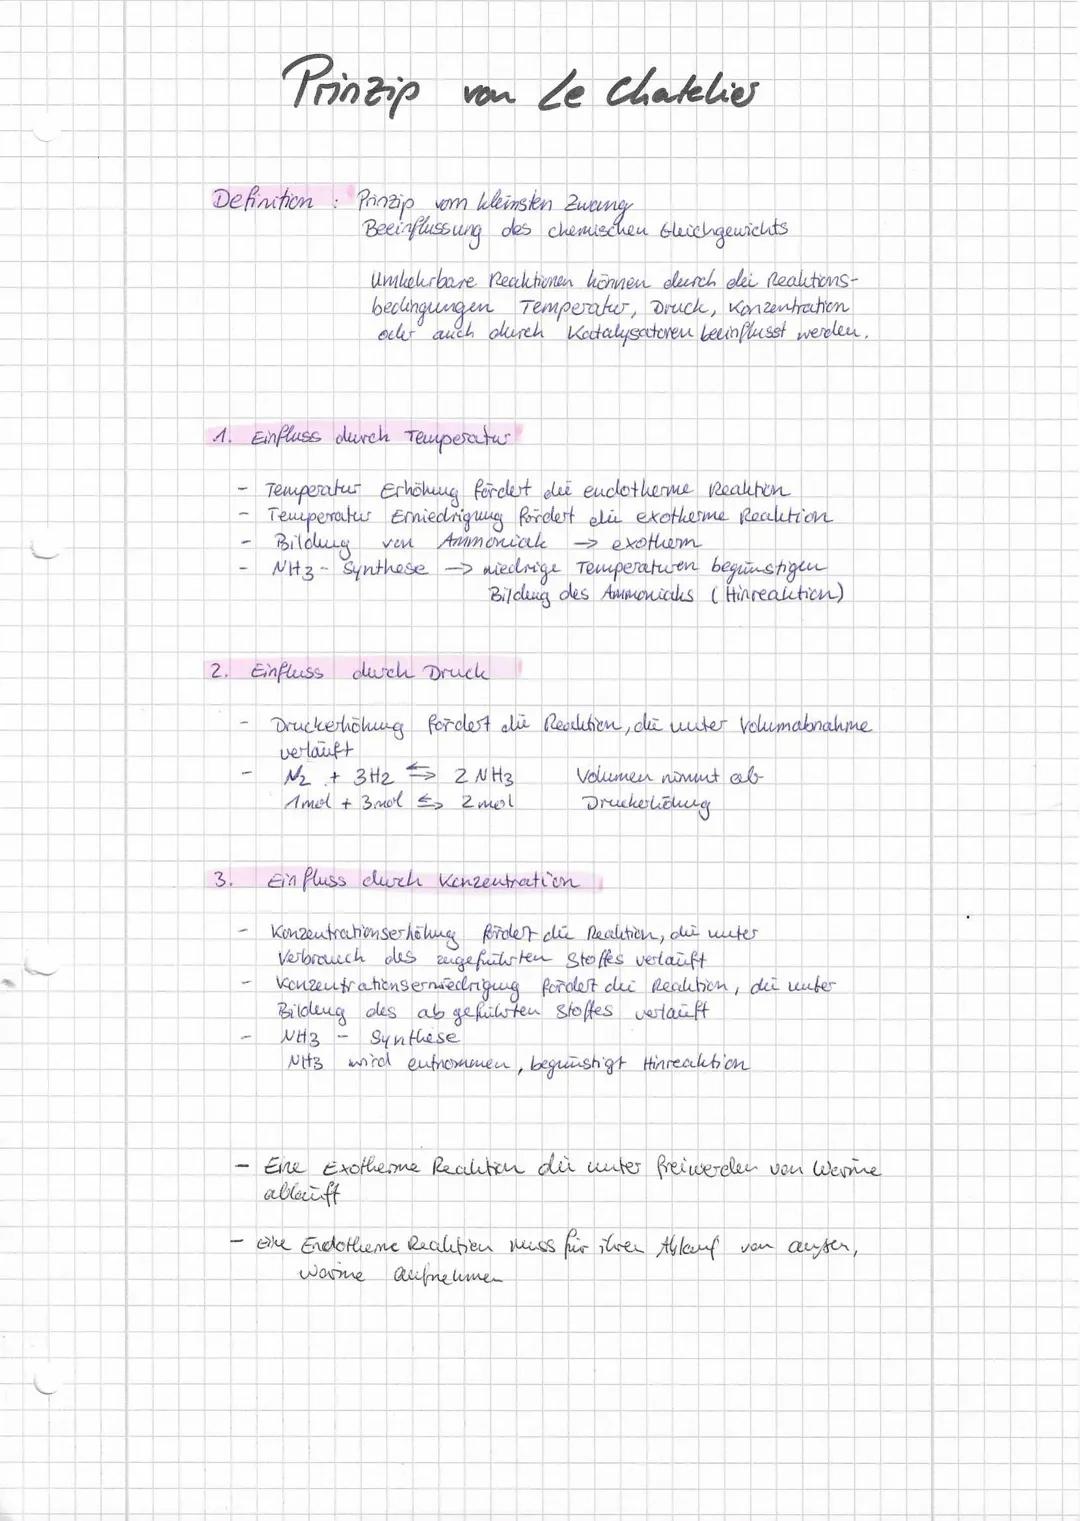 Prinzip von Le Chatelier
Definition : Prinzip vom kleinsten Zwang
Beeinflussung des chemischen Gleichgewichts
Umkehrbare Reaktionen können durch die Reaktions-
bedingungen Temperatur, Druck, Konzentration
oder auch durch Katalysatoren beeinflusst werden.
1. Einfluss durch Temperatur
- Temperatur Erhöhung fördert die endotherme Reaktion
- Temperatur Erniedrigung fördert die exotherme Reaktion
- Bildung von Ammoniak → exotherm
- NH3 - Synthese → niedrige Temperaturen begünstigen
Bildung des Ammoniaks (Hinreaktion)
2. Einfluss durch Druck
- Druckerhöhung fördert die Reaktion, die unter Volumabnahme
verläuft
- N2 + 3H2 ⇆ 2 NH3 Volumen nimmt ab
1mol + 3mol ⇆ 2 mol Druckerhöhung
3. Einfluss durch Konzentration
- Konzentrationserhöhung fördert die Reaktion, die unter
Verbrauch des zugeführten Stoffes verläuft
- Konzentrationserniedrigung fördert die Reaktion, die unter
Bildung des abgeführten Stoffes verläuft
- NH3 - Synthese
NH3 wird entnommen, begünstigt Hinreaktion
- Eine Exotherme Reaktion die unter freiwerden von Wärme
abläuft
- eine Endotherme Reaktion muss für ihren Ablauf von außen,
Wärme aufnehmen